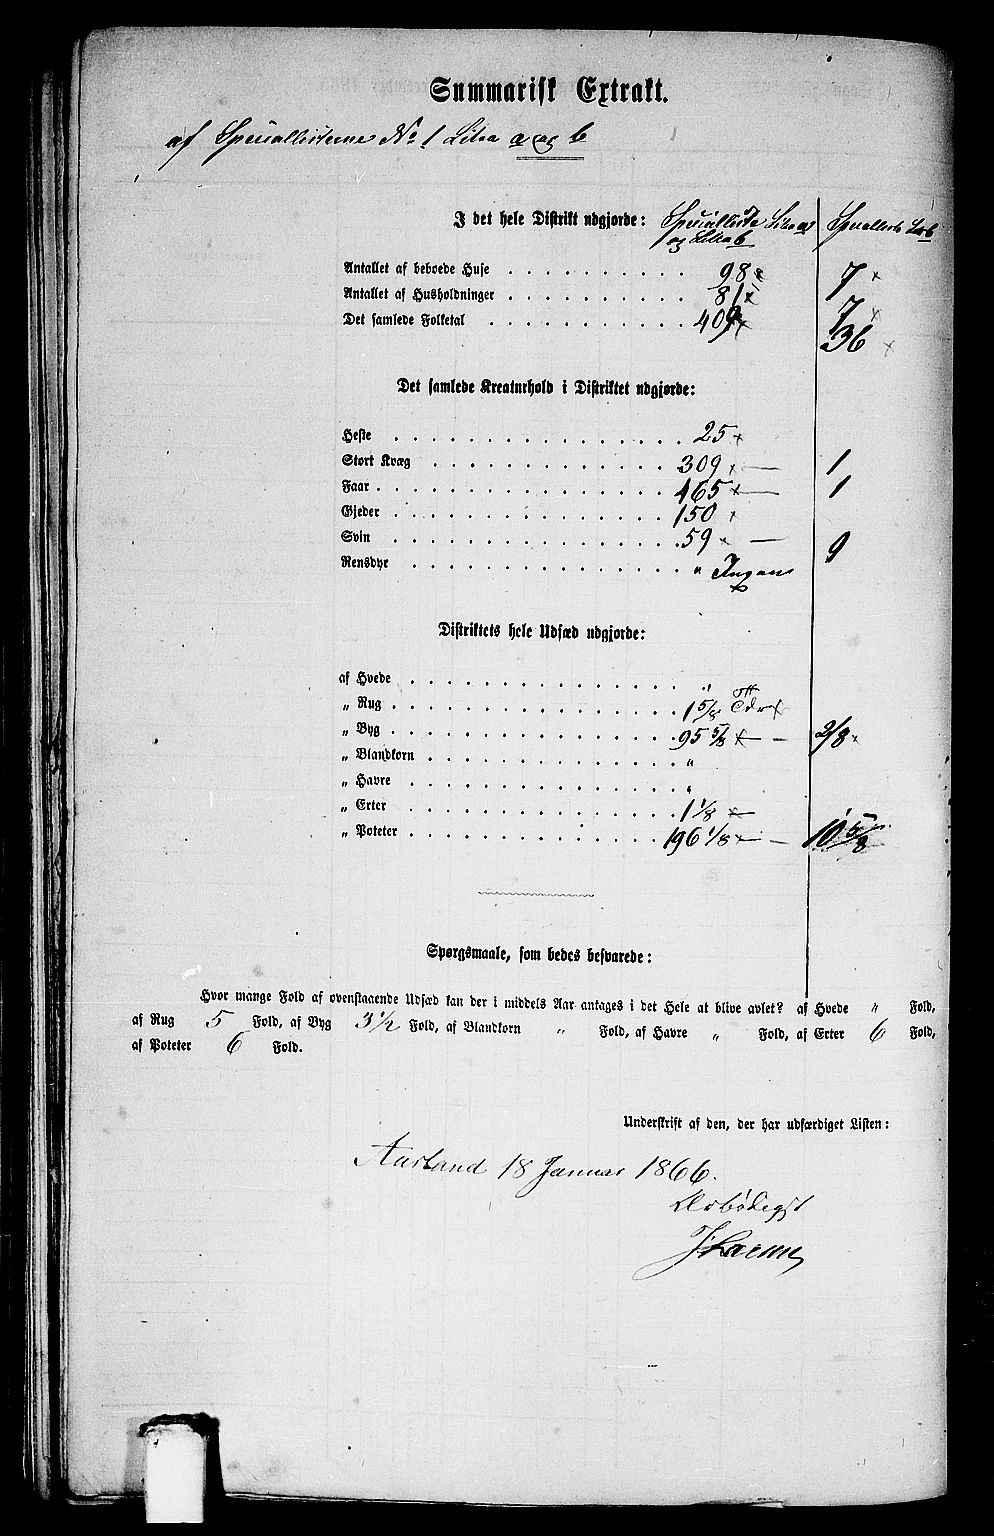 Summarisk Extrakt.
af Speciallisterne No 1 Litra a og b
I det hele Distrikt udgjorde: Speciallista Litra a Specialliste Lr b
og Litra b
Antallet af beboede Huse . . . . . . . . . . 98 x 7 x
Antallet af Husholdninger . . . . . . . . . . 81 x 7 x
Det samlede Folketal . . . . . . . . . . . 409 x 36 x
Det samlede Kreaturhold i Distriktet udgjorde:
Heste . . . . . . . . . . . . . . . . . 25 x
Stort Kvæg . . . . . . . . . . . . . . 309 x — 1
Faar . . . . . . . . . . . . . . . . . 465 x — 1
Gjeder . . . . . . . . . . . . . . . . 150 x
Svin . . . . . . . . . . . . . . . . . 59 x — 9
Rensdyr . . . . . . . . . . . . . . . . " Ingen x
Distriktets hele Udsæd udgjorde:
af Hvede . . . . . . . . . . . . . . . . "
„ Rug . . . . . . . . . . . . . . . . . 1 5/8 Tdr x
„ Byg . . . . . . . . . . . . . . . . . 95 5/8 x — 2/8 x
„ Blandkorn . . . . . . . . . . . . . . "
„ Havre . . . . . . . . . . . . . . . . "
„ Erter . . . . . . . . . . . . . . . . 1 1/8 x
„ Poteter . . . . . . . . . . . . . . . 196 1/8 x — 10 5/8
Spørgsmaale, som bedes besvarede:
Hvor mange Fold af ovenstaaende Udsæd kan der i middels Aar antages i det Hele at blive avlet? af Hvede " Fold,
af Rug 5 Fold, af Byg 3 1/2 Fold, af Blandkorn " Fold, af Havre " Fold, af Erter 6 Fold,
af Poteter 6 Fold.
Underskrift af den, der har udfærdiget Listen:
Aurland 18 Januar 1866.
Ærbødigst